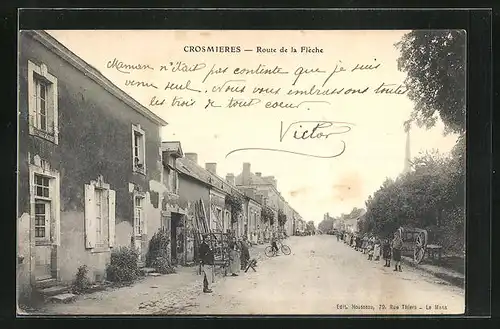 CROSMIERES — Route de la Flèche
Maman n'était pas contente que je suis
venu seul. Nous vous embrassons toutes
les trois de tout cœur.
Victor
Edit. 79, Rue Thiers - Le Mans